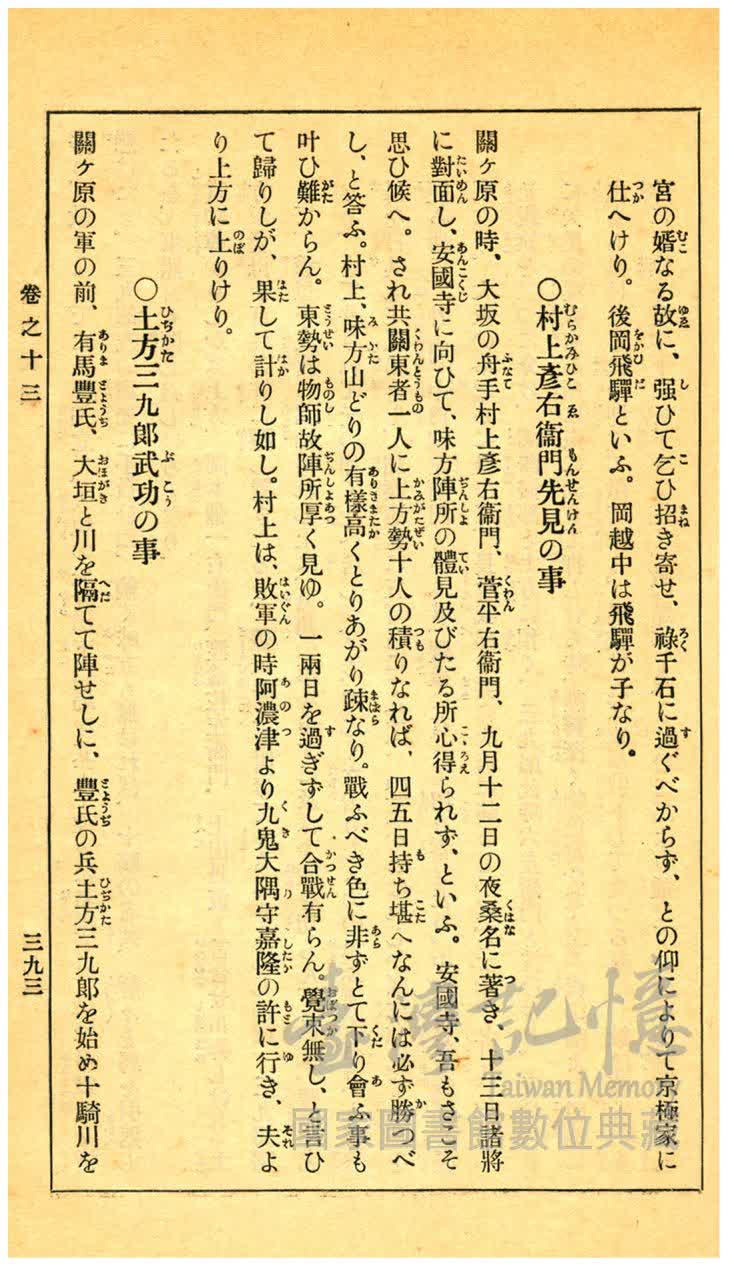 宮の婿なる故に、强ひて乞ひ招き寄せ、祿千石に過ぐべからず、との仰によりて京極家に
仕へけり。後岡飛驒といふ。岡越中は飛驒が子なり。
○村上彥右衞門先見の事
關ヶ原の時、大坂の舟手村上彥右衞門、菅平右衞門、九月十二日の夜桑名に著き、十三日諸將
に對面し、安國寺に向ひて、味方陣所の體見及びたる所心得られず、といふ。安國寺、吾もさこそ
思ひ候へ。され共關東者一人に上方勢十人の積りなれば、四五日持ち堪へなんには必ず勝つべ
し、と答ふ。村上、味方山どりの有樣高くとりあがり疎なり。戰ふべき色に非ずとて下り會ふ事も
叶ひ難からん。東勢は物師故陣所厚く見ゆ。一兩日を過ぎずして合戰有らん。覺束無し、と言ひ
て歸りしが、果して計りし如し。村上は、敗軍の時阿濃津より九鬼大隅守嘉隆の許に行き、夫よ
り上方に上りけり。
○土方三九郎武功の事
關ヶ原の軍の前、有馬豐氏、大垣と川を隔てて陣せしに、豐氏の兵土方三九郎を始め十騎川を
卷之十三
三九三
臺灣記憶
Taiwan Memory
國家圖書館數位典藏